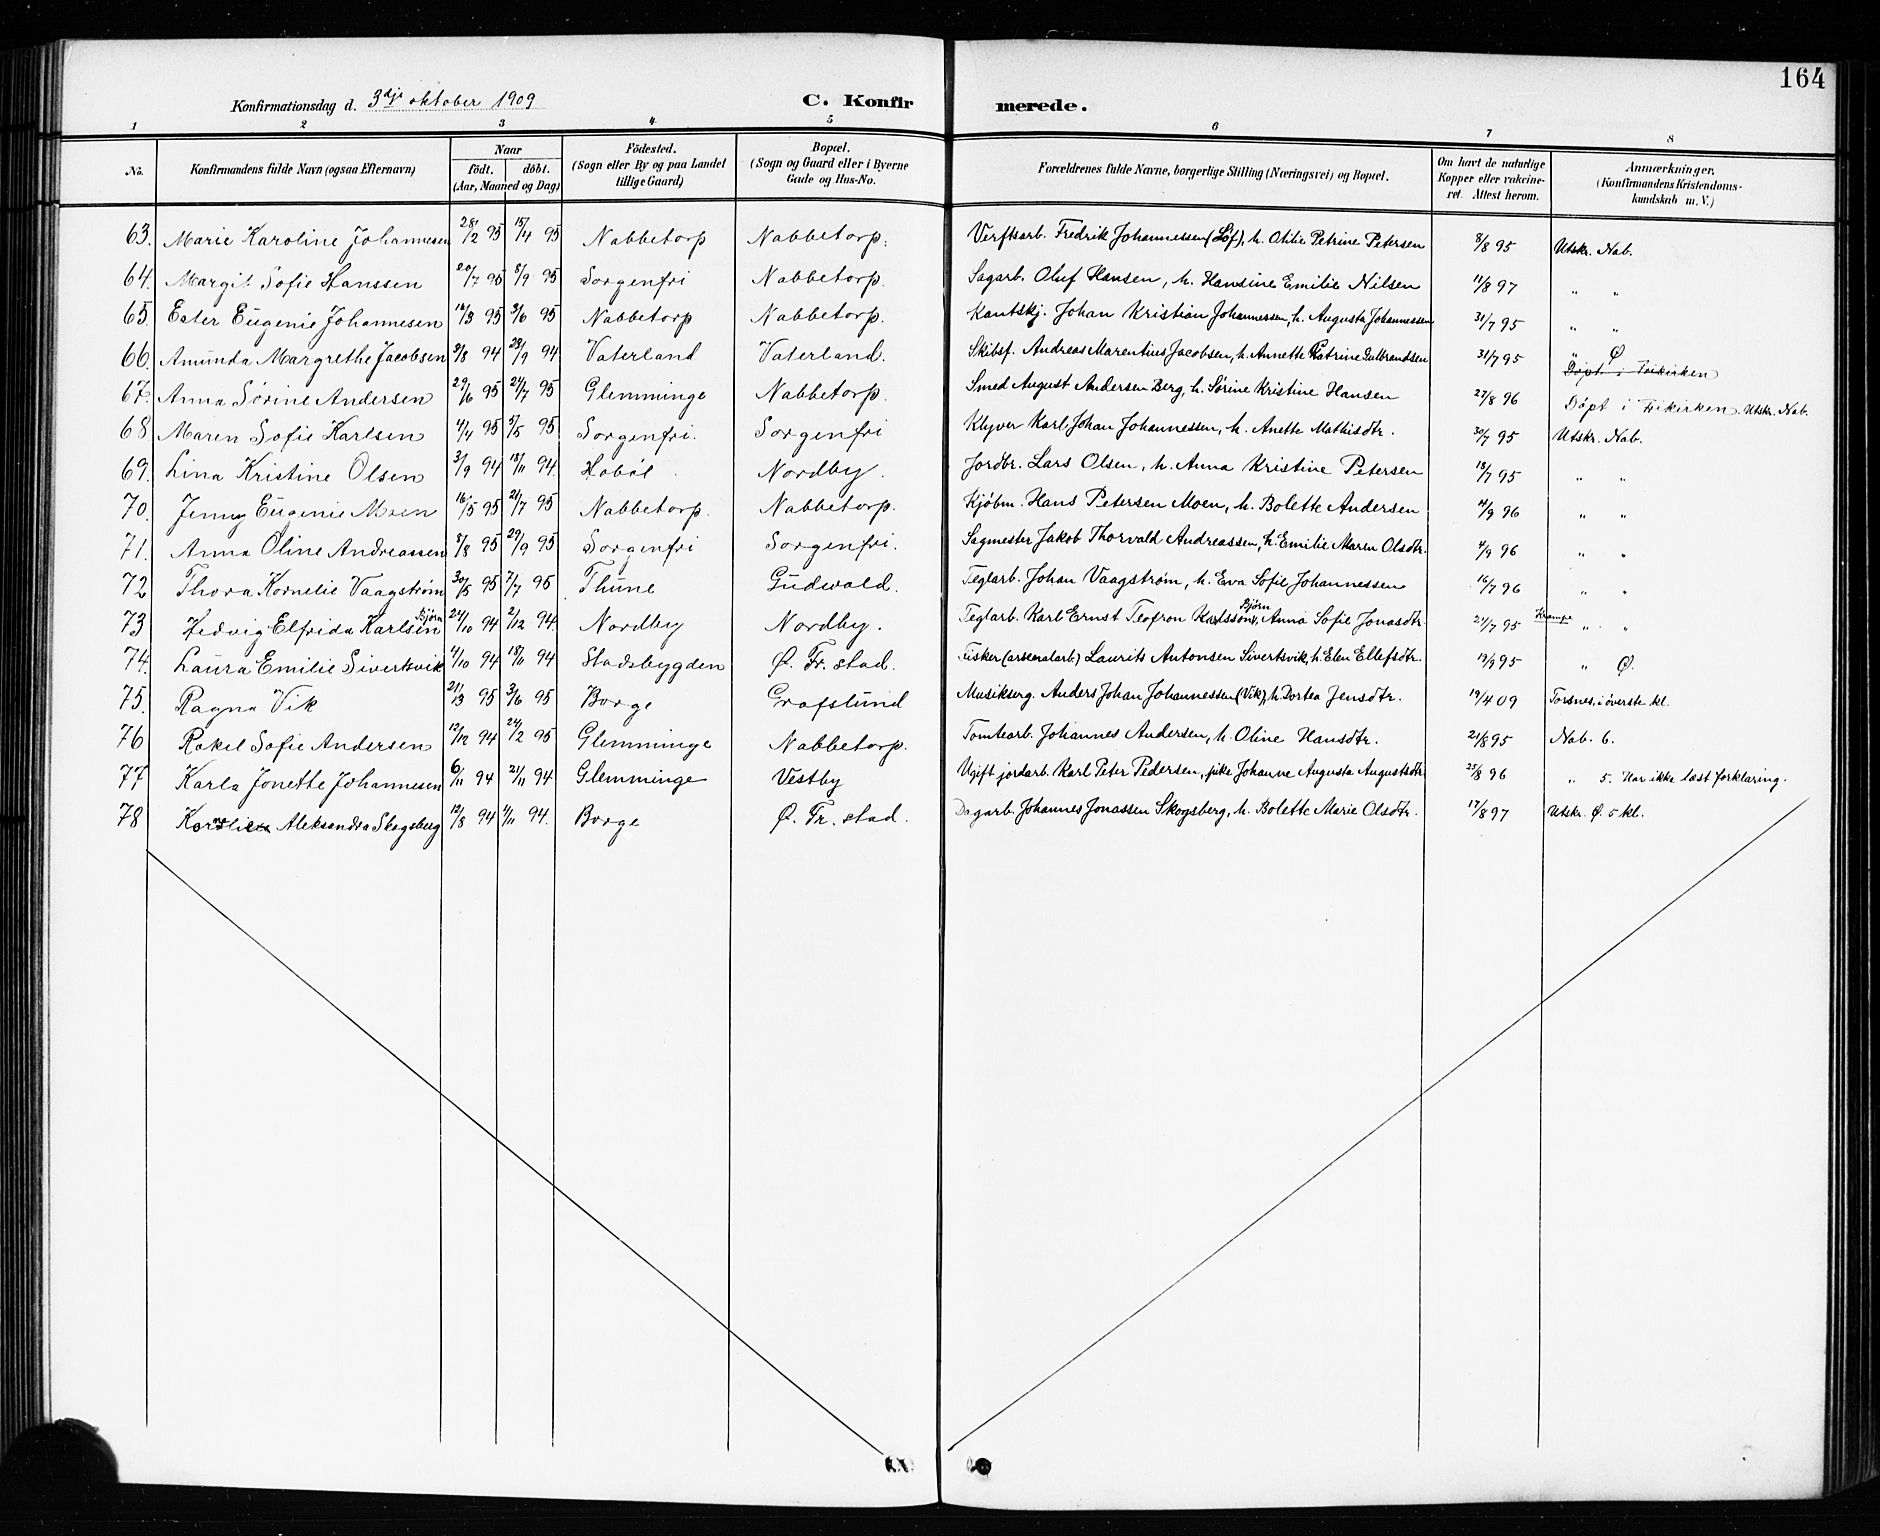 164
Konfirmationsdag d. 3dje oktober 1909 C. Konfirmerede.
1 2 3 4 5 6 7 8
No. Konfirmandens fulde Navn (ogsaa Efternavn) Naar født. døbt. (Aar, Maaned og Dag) Fødested. (Sogn eller By og paa Landet tillige Gaard) Bopæl. (Sogn og Gaard eller i Byerne Gade og Hus-No. Forældrenes fulde Navne, borgerlige Stilling (Næringsvei) og Bopæl. Om havt de naturlige Kopper eller vakcineret. Attest herom. Anmærkninger. (Konfirmandens Kristendomskundskab m. V.)
63. Marie Karoline Johannesen 28/2 95 15/4 95 Nabbetorp Nabbetorp. Verftsarb. Fredrik Johannessen (Löf), h. Otilie Petrine Petersen 8/8 95 Utskr. Nab.
64. Margit Sofie Hanssen 20/7 95 8/9 95 Sorgenfri Nabbetorp. Sagarb. Oluf Hansen, h. Hansine Emilie Nilsen 11/8 97 " "
65. Ester Eugenie Johannesen 18/3 95 3/6 95 Nabbetorp Nabbetorp. Kantskj. Johan Kristian Johannessen, h. Augusta Johannessen 31/7 95 " "
66. Amunda Margrethe Jacobsen 9/8 94 23/9 94 Vaterland Vaterland. Skibsf. Andreas Marentius Jacobsen, h. Annette Katrine Gulbrandsen 31/7 95 " Ø
Döpt i Frikirken
67. Anna Sörine Andersen 29/6 95 21/7 95 Glemminge Nabbetorp. Smed August Andersen Berg, h. Sörine Kristine Hansen 27/8 96 Döpt i Frikirken. Utskr. Nab.
68 Maren Sofie Karlsen 4/4 95 5/5 95 Sorgenfri. Sorgenfri Klyver Karl Johan Johannessen, h. Anette Mathisdtr. 30/7 95 Utskr. Nab.
69. Lina Kristine Olsen 3/9 94 18/11 94. Hobøl Nordby. Jordbr. Lars Olsen, h. Anna Kristine Petersen 18/7 95 " "
70. Jenny Eugenie Moen 16/5 95 21/7 95 Nabbetorp. Nabbetorp. Kjøbm. Hans Petersen Moen, h. Bolette Andersen 4/9 96 " "
71. Anna Oline Andreassen 8/8 95 29/9 95 Sorgenfri Sorgenfri. Sagmester Jakob Thorvald Andreassen, h. Emilie Maren Olsdtr. 4/9 96 " "
72 Thora Kornelie Vaagstrøm 30/5 95 7/7 95 Thune Gudwald. Teglarb. Johan Vaagstrøm, h. Eva Sofie Johannessen 16/7 96 " "
73 Hedvig Elfrida Karlsen Björn 24/10 94 2/12 94. Nordby Nordby. Teglarb. Karl Ernst Teofron Karlsson Björn, Anna Sofie Jonasdtr. 24/7 95 Krampe " "
74. Laura Emilie Sivertsvik 4/10 94 18/11 94 Stadsbygden Ø. Fr. stad. Fisker (arsenalarb.) Laurits Antonsen Sivertsvik, h. Elen Ellefsdtr. 19/9 95 " Ø.
75. Ragna Vik 21/3 95 3/6 95 Borge Grafslund Musikserg. Anders Johan Johannessen (Vik), h. Dortea Jensdtr. 19/4 09 Torsnes, i överste kl.
76 Rakel Sofie Andersen 12/12 94 24/2 95 Glemminge Nabbetorp. Tomtearb. Johannes Andersen, h. Oline Hansdtr. 21/8 95 Nab. 6.
77 Karla Jonette Johannesen 6/11 94 21/11 94 Glemminge Vestby Ugift jordarb. Karl Peter Pedersen, pike Johanne Augusta Augustsdtr. 25/8 96 " 5. Har ikke læst forklaring.
78 Aleksandra Skogsberg 12/8 94 4/11 94. Borge Ø. Fr. stad. Dagarb. Johannes Jonassen Skogsberg, h. Bolette Marie Olsdtr. 17/8 97 Utskr. Ø. 5 kl.